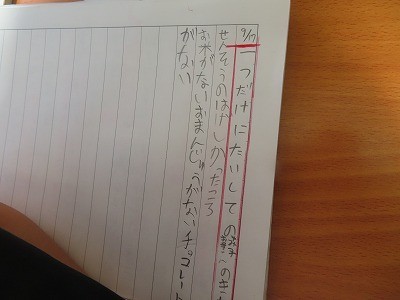 9/7
一つだけにたいしての
せんそうのはげしかったころ
お米がないおまんじゅうがないチョコレート
がない